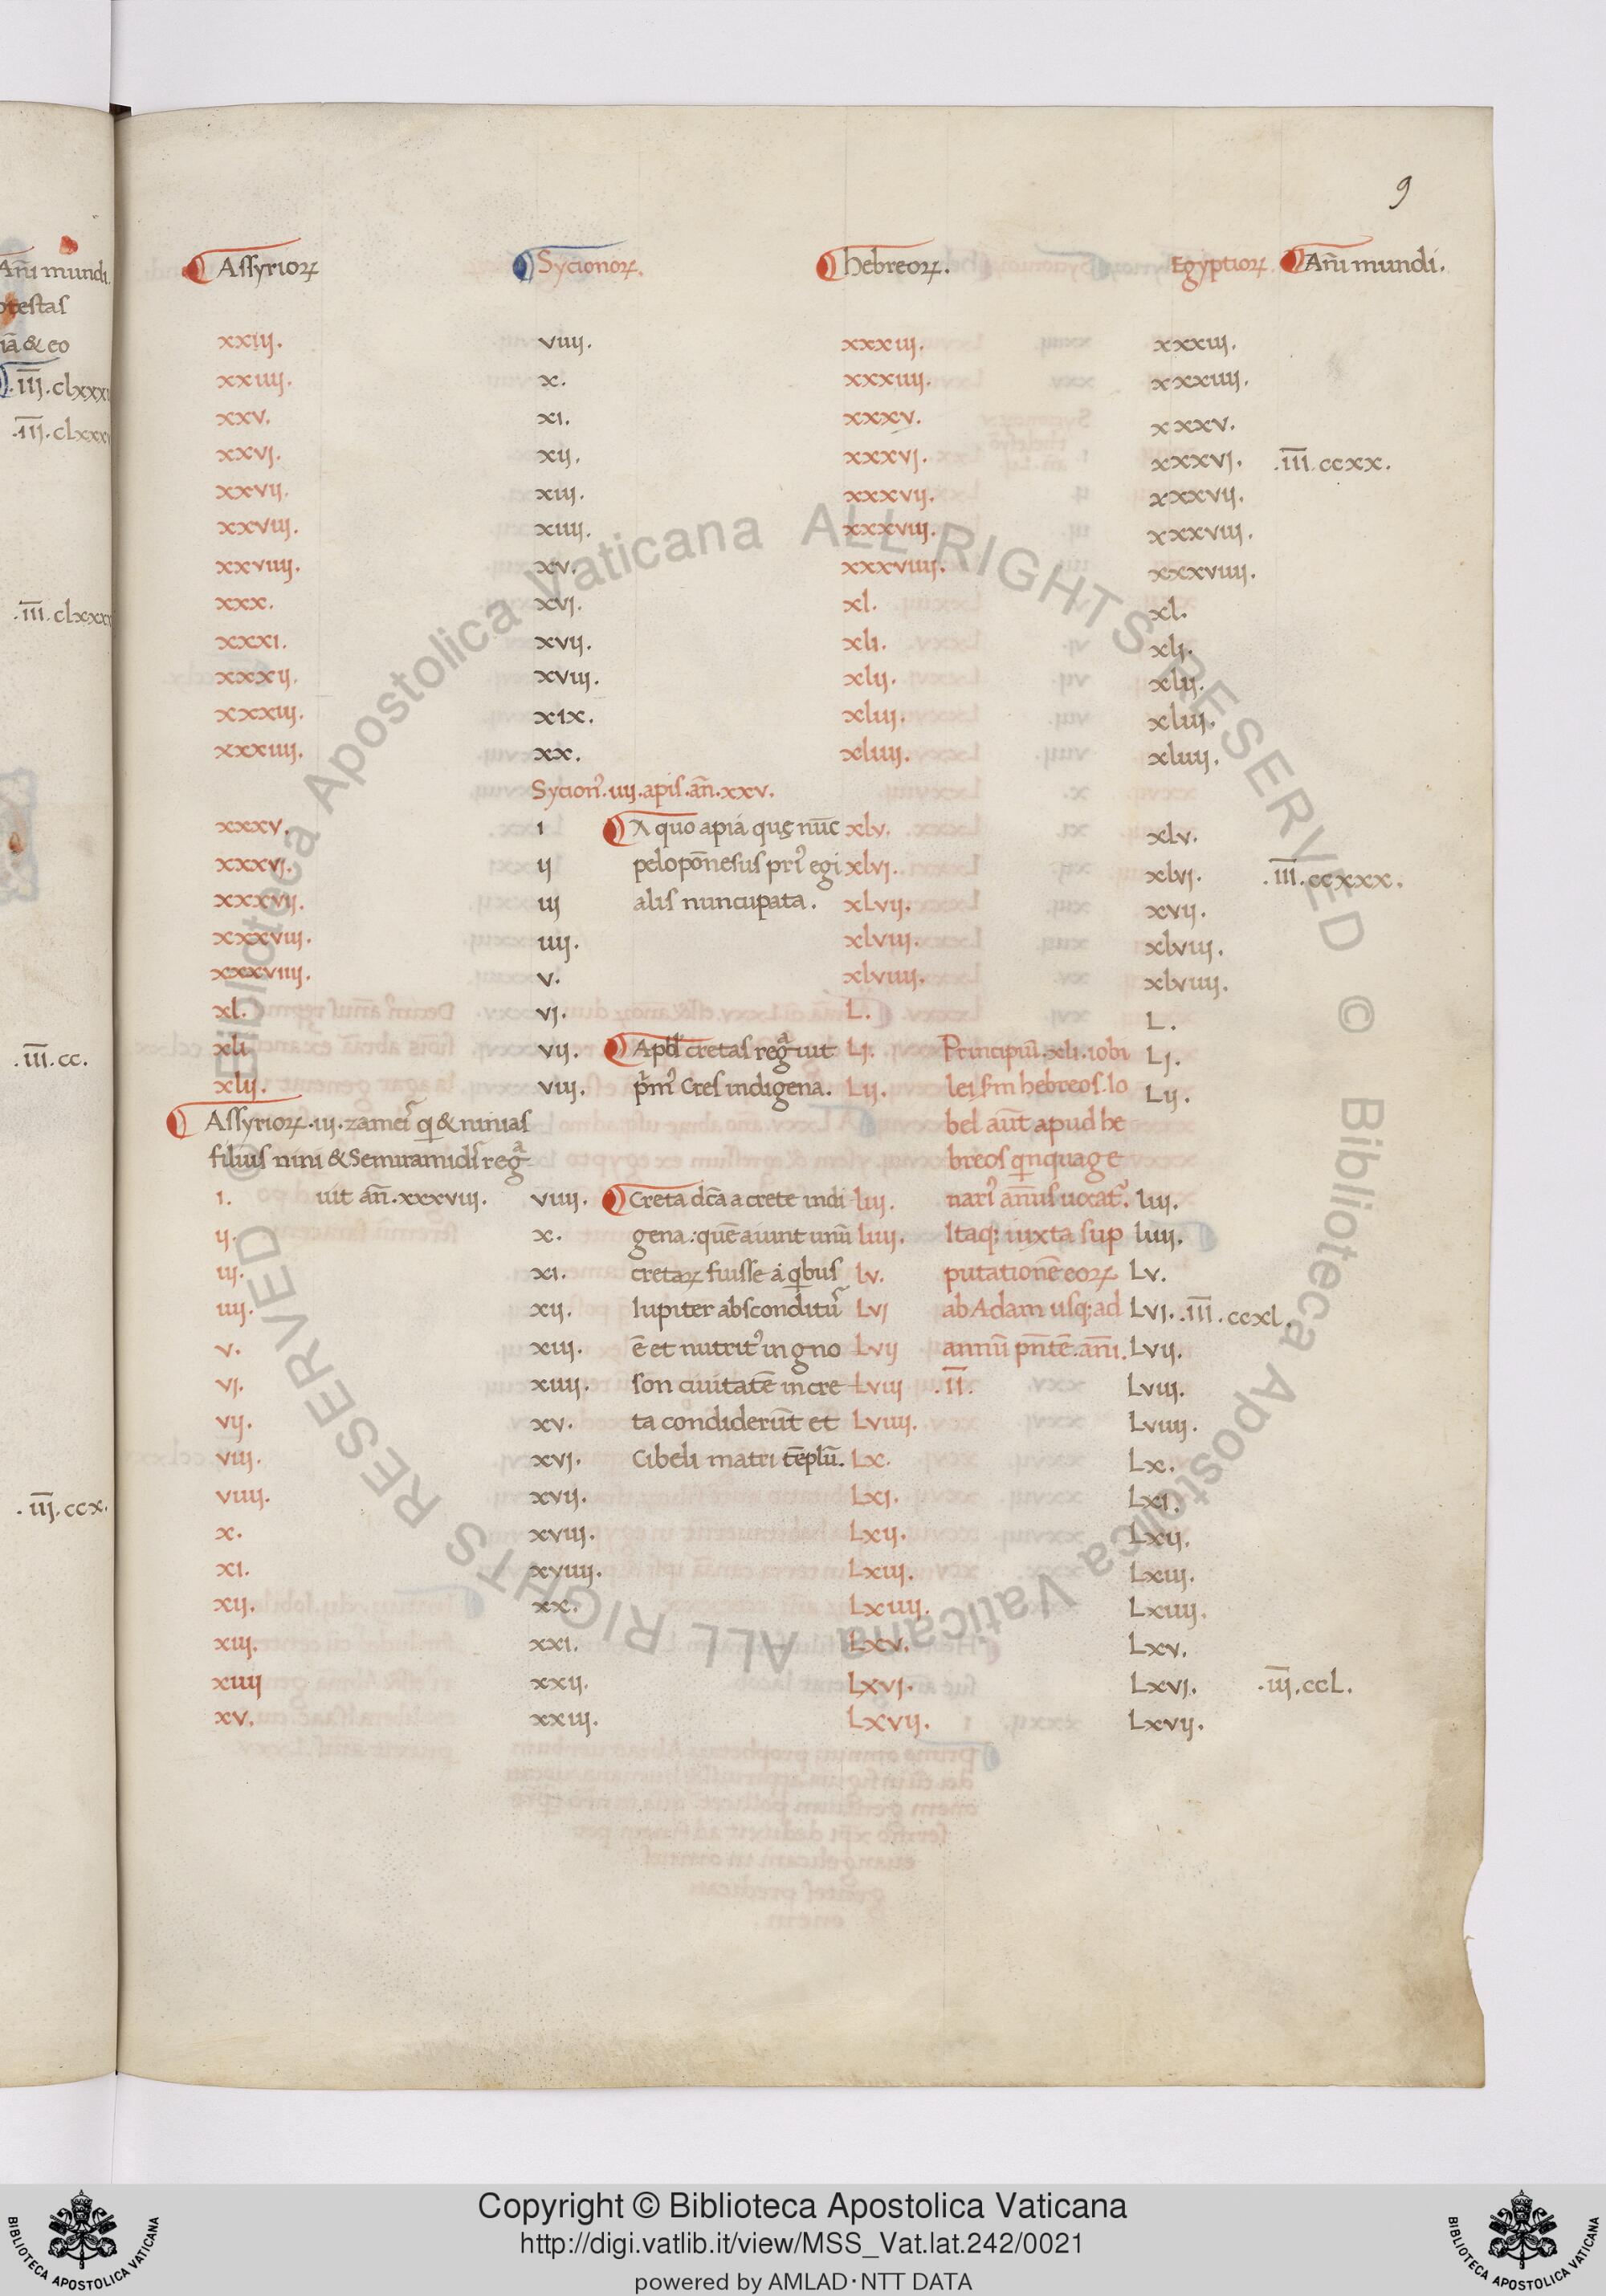 9
Assyrioꝝ Sycionoꝝ. hebreoꝝ. Egyptioꝝ. Am̄i mundi.
Am̄i mundi.
otestas
iā & eo
.iij. clxxx
.iij. clxxx
.iii. clxxx
.iii. cc.
.iij. ccx.
xxiij. viiij. xxxiij. xxxiij.
xxiiij. x. xxxiiij. xxxiiij.
xxv. xi. xxxv. xxxv.
xxvj. xij. xxxvj. xxxvj. .iii. ccxx.
xxvij. xiij. xxxvij. xxxvij.
xxviij. xiiij. xxxviij. xxxviij.
xxviiij. xv. xxxviiij. xxxviiij.
xxx. xvj. xl. xl.
xxxi. xvij. xli. xlj.
xxxij. xviij. xlij. xlij.
xxxiij. xix. xliij. xliij.
xxxiiij. xx. xliiij. xliiij.
Sycion̉. iiij. apis. an̄. xxv.
xxxv. i A quo apiá quę nūc xlv. xlv.
xxxvj. ij pelopōnesus pri᷒ egi xlvj. xlvj. .iii. ccxxx.
xxxvij. iij alis nuncupata. xlvij. xvij.
xxxviij. iiij. xlviij. xlviij.
xxxviiij. v. xlviiij. xlviiij.
xl. vj. L. L.
xli vij. Apđ cretas regͣuit Lj. Principiū. xli. iobi Lj.
xlij. viij. p̄m᷒ Cres indigena. Lij. lei s̄m hebreos. Io Lij.
Assyrioꝝ. iij. zamei᷒ qi & ninias bel aūt apud he
filius nini & Semiramidis regͣ breos qinquage
i. uit an̄. xxxviij. viiij. Creta dc̄a a crete indi liij. nari᷒ an̄us uocat᷒. liij.
ij. x. gena: quē aiunt unū liiij. Itaq; iuxta sup liiij.
iij. xi. cretaꝝ fuisse á qibus lv. putationē eoꝝ Lv.
iiij. xij. Iupiter absconditu᷒ Lvj ab Adam usq; ad Lvj. .iii. ccxl.
v. xiij. ē et nutrit᷒ in gno Lvij annū pn̄tē. an̄i. Lvij.
vj. xiiij. son ciuitatē in cre Lviij .ii. Lviij.
vij. xv. ta condiderūt et Lviiij. Lviiij.
viij. xvj. Cibeli matri tēplū. Lx. Lx.
viiij. xvij. Lxj. Lxj.
x. xviij. Lxij. Lxij.
xi. xviiij. Lxiij. Lxiij.
xij. xx. Lxiiij. Lxiiij.
xiij. xxi. Lxv. Lxv.
xiiij xxij. Lxvj. Lxvj. .iij. ccl.
xv. xxiij. Lxvij. Lxvij.
© Biblioteca Apostolica Vaticana ALL RIGHTS RESERVED
© Biblioteca Apostolica Vaticana ALL RIGHTS RESERVED
Copyright © Biblioteca Apostolica Vaticana
http://digi.vatlib.it/view/MSS_Vat.lat.242/0021
powered by AMLAD·NTT DATA
BIBLIOTECA APOSTOLICA VATICANA
BIBLIOTECA APOSTOLICA VATICANA